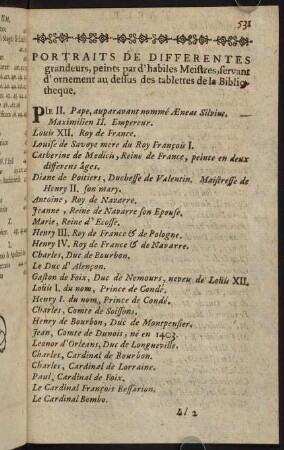 531
PORTRAITS DE DIFFERENTES
grandeurs, peints par d'habiles Meistres, servant
d'ornement au dessus des tablettes de la Biblio-
theque.
PIE II. Pape, auparavant nommé Æneas Silvius.
Maximilien II. Empereur.
Louis XII. Roy de France.
Louise de Savoye mere du Roy François I.
Catherine de Medicis, Reine de France, peinte en deux
differens âges.
Diane de Poitiers, Duchesse de Valentin. Maistresse de
Henry II. son mary.
Antoine, Roy de Navarre.
Jeanne, Reine de Navarre son Epouse.
Marie, Reine d'Ecosse.
Henry III. Roy de France & de Pologne.
Henry IV. Roy de France & de Navarre.
Charles, Duc de Bourbon.
Le Duc d'Alençon.
Gaston de Foix, Duc de Nemours, neveu de Loüis XII.
Loüis I. du nom, Prince de Condé.
Henry I. du nom, Prince de Condé.
Charles, Comte de Soissons.
Henry de Bourbon, Duc de Montpensier.
Jean, Comte de Dunois, né en 1403.
Leonor d'Orleans, Duc de Longueville.
Charles, Cardinal de Bourbon.
Charles, Cardinal de Lorraine.
Paul, Cardinal de Foix.
Le Cardinal François Bessarion.
Le Cardinal Bembo.